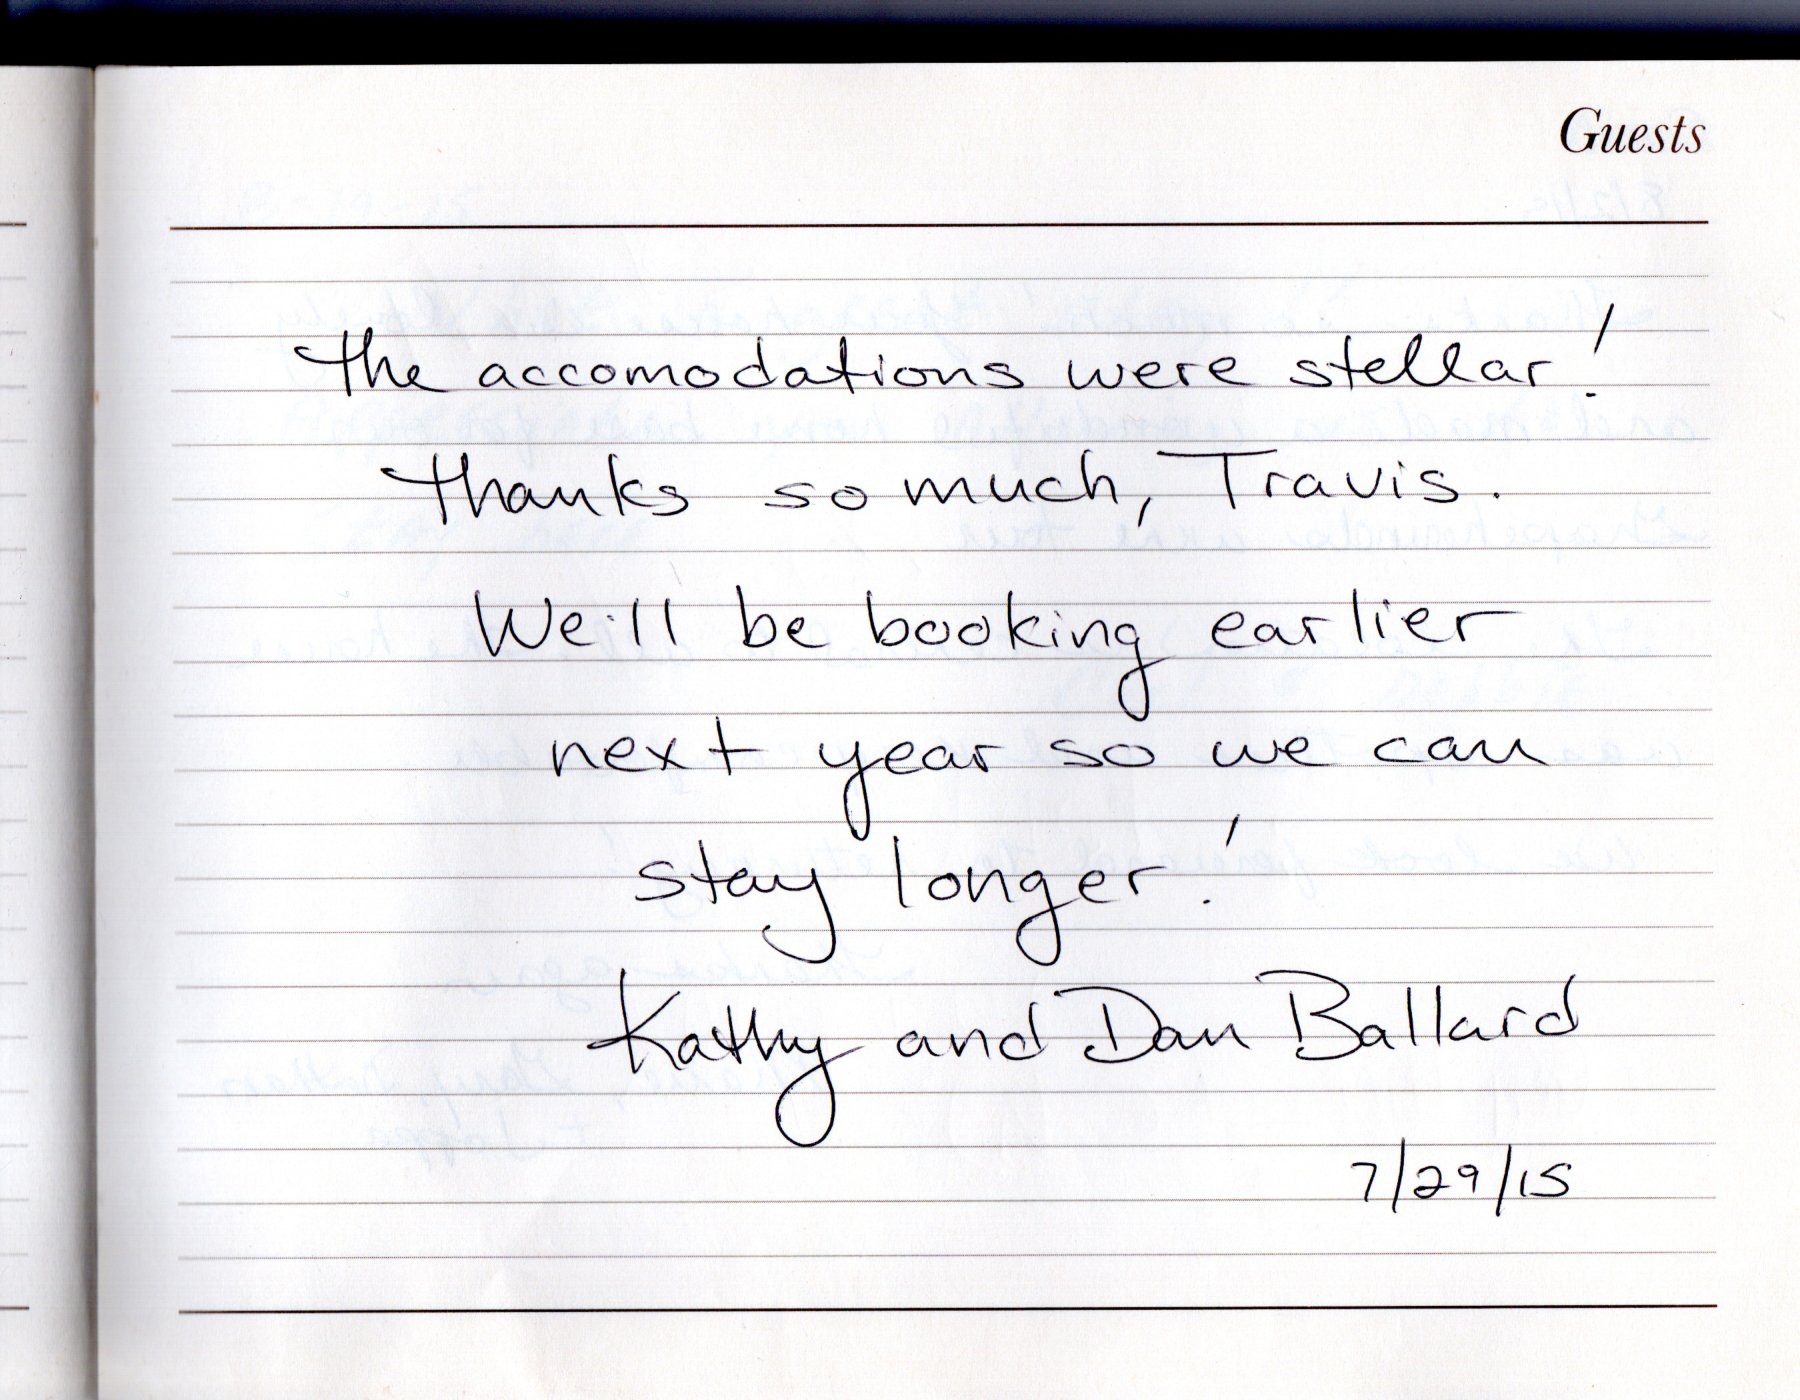 Guests
The accomodations were stellar!
Thanks so much, Travis.
We'll be booking earlier
next year so we can
stay longer!
Kathy and Dan Ballard
7/29/15